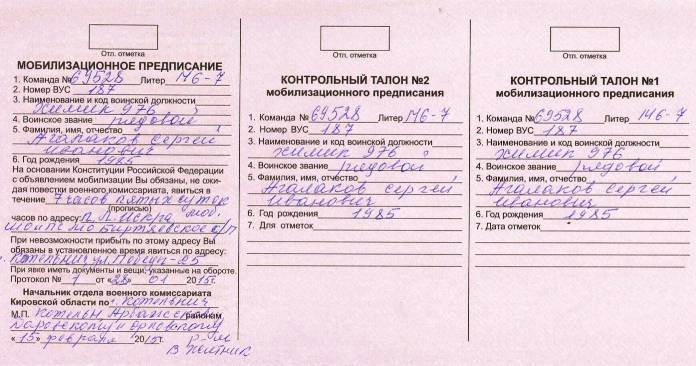 Отл. отметка
МОБИЛИЗАЦИОННОЕ ПРЕДПИСАНИЕ
1. Команда № 69528 Литер 146-7
2. Номер ВУС 187
3. Наименование и код воинской должности
химик 976
4. Воинское звание рядовой
5. Фамилия, имя, отчество
Агалаков Сергей
Иванович
6. Год рождения 1985
На основании Конституции Российской Федерации
с объявлением мобилизации Вы обязаны, не ожи-
дая повестки военного комиссариата, явиться в
течение 7 часов пятых суток
(прописью)
часов по адресу: п. Л. Искра
При невозможности прибыть по этому адресу Вы
обязаны в установленное время явиться по адресу:
г. Котельнич ул. Победы-25
При явке иметь документы и вещи, указанные на обороте.
Протокол № 1 от «28» 01 2015г.
Начальник отдела военного комиссариата
Кировской области по г. Котельнич
М.П. Котельн, Арбажскому районам
Даровскому и Орловскому
«15» февраля 2015г.
Отл. отметка
КОНТРОЛЬНЫЙ ТАЛОН №2
мобилизационного предписания
1. Команда № 69528 Литер 146-7
2. Номер ВУС 187
3. Наименование и код воинской должности
химик 976
4. Воинское звание рядовой
5. Фамилия, имя, отчество
Агалаков Сергей
Иванович
6. Год рождения 1985
7. Для отметок
Отл. отметка
КОНТРОЛЬНЫЙ ТАЛОН №1
мобилизационного предписания
1. Команда № 69528 Литер 146-7
2. Номер ВУС 187
3. Наименование и код воинской должности
химик 976
4. Воинское звание рядовой
5. Фамилия, имя, отчество
Агалаков Сергей
Иванович
6. Год рождения 1985
7. Дата отметок